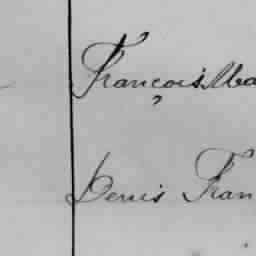 François Ma
Denis Fran